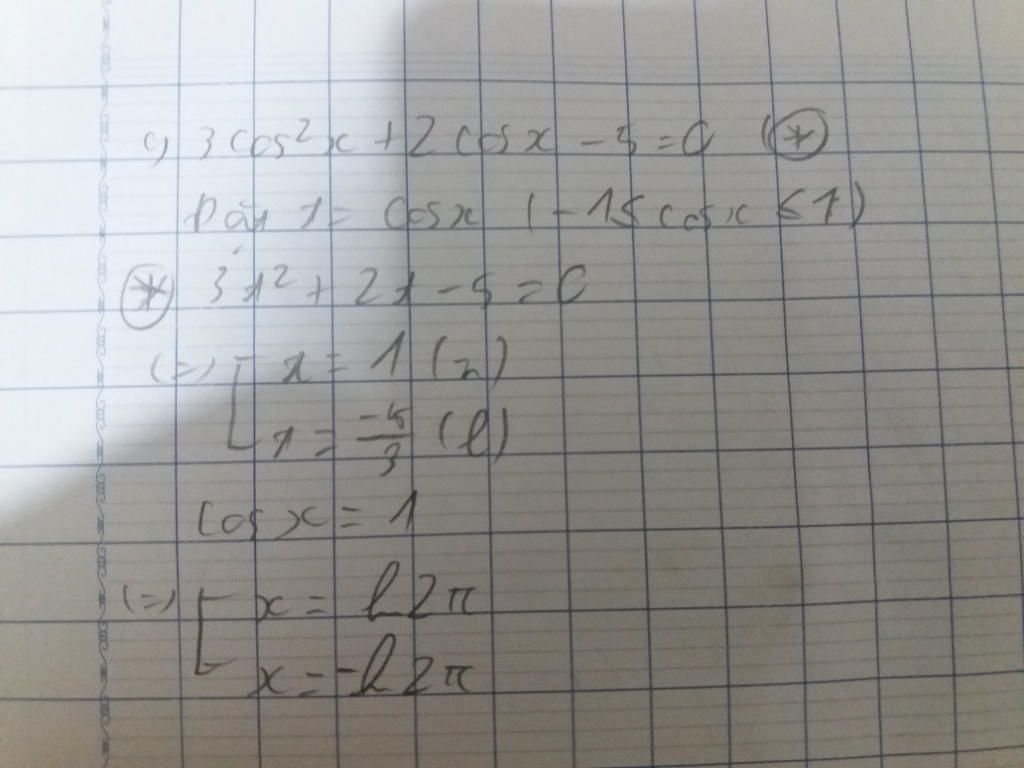 c) 3cos²x + 2cosx - 5 = 0 (*)
Đặt t = cosx (-1 ≤ cosx ≤ 1)
(*) 3t² + 2t - 5 = 0
(=) [ t = 1 (n)
t = -5/3 (l)
cosx = 1
(=) [ x = k2π
x = -k2π